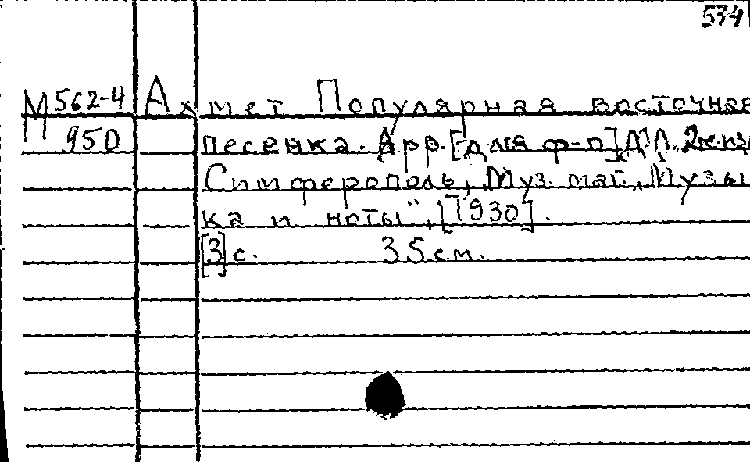 534
М 562-4 Ахмет Популярная восточная
950 песенка. Арр. [для ф-п]
Симферополь, Муз. маг. „Музы
ка и ноты", [1930].
[3] с. 35 см.